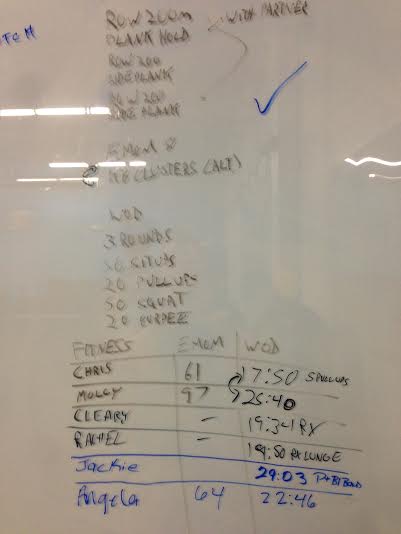 ROW 200m WITH PARTNER
PLANK HOLD
ROW 200
SIDE PLANK
ROW 200
SIDE PLANK
EMOM 8
CLUSTERS (ALT)
WOD
3 ROUNDS
SITUPS
20 PULLUPS
50 SQUAT
20 BURPEE
FITNESS EMOM WOD
CHRIS 61 17:50
MOLLY 97 25:40
CLEARY - 19:34 RX
RACHEL - :50 RX LUNGE
Jackie 29:03
Angela 64 22:46